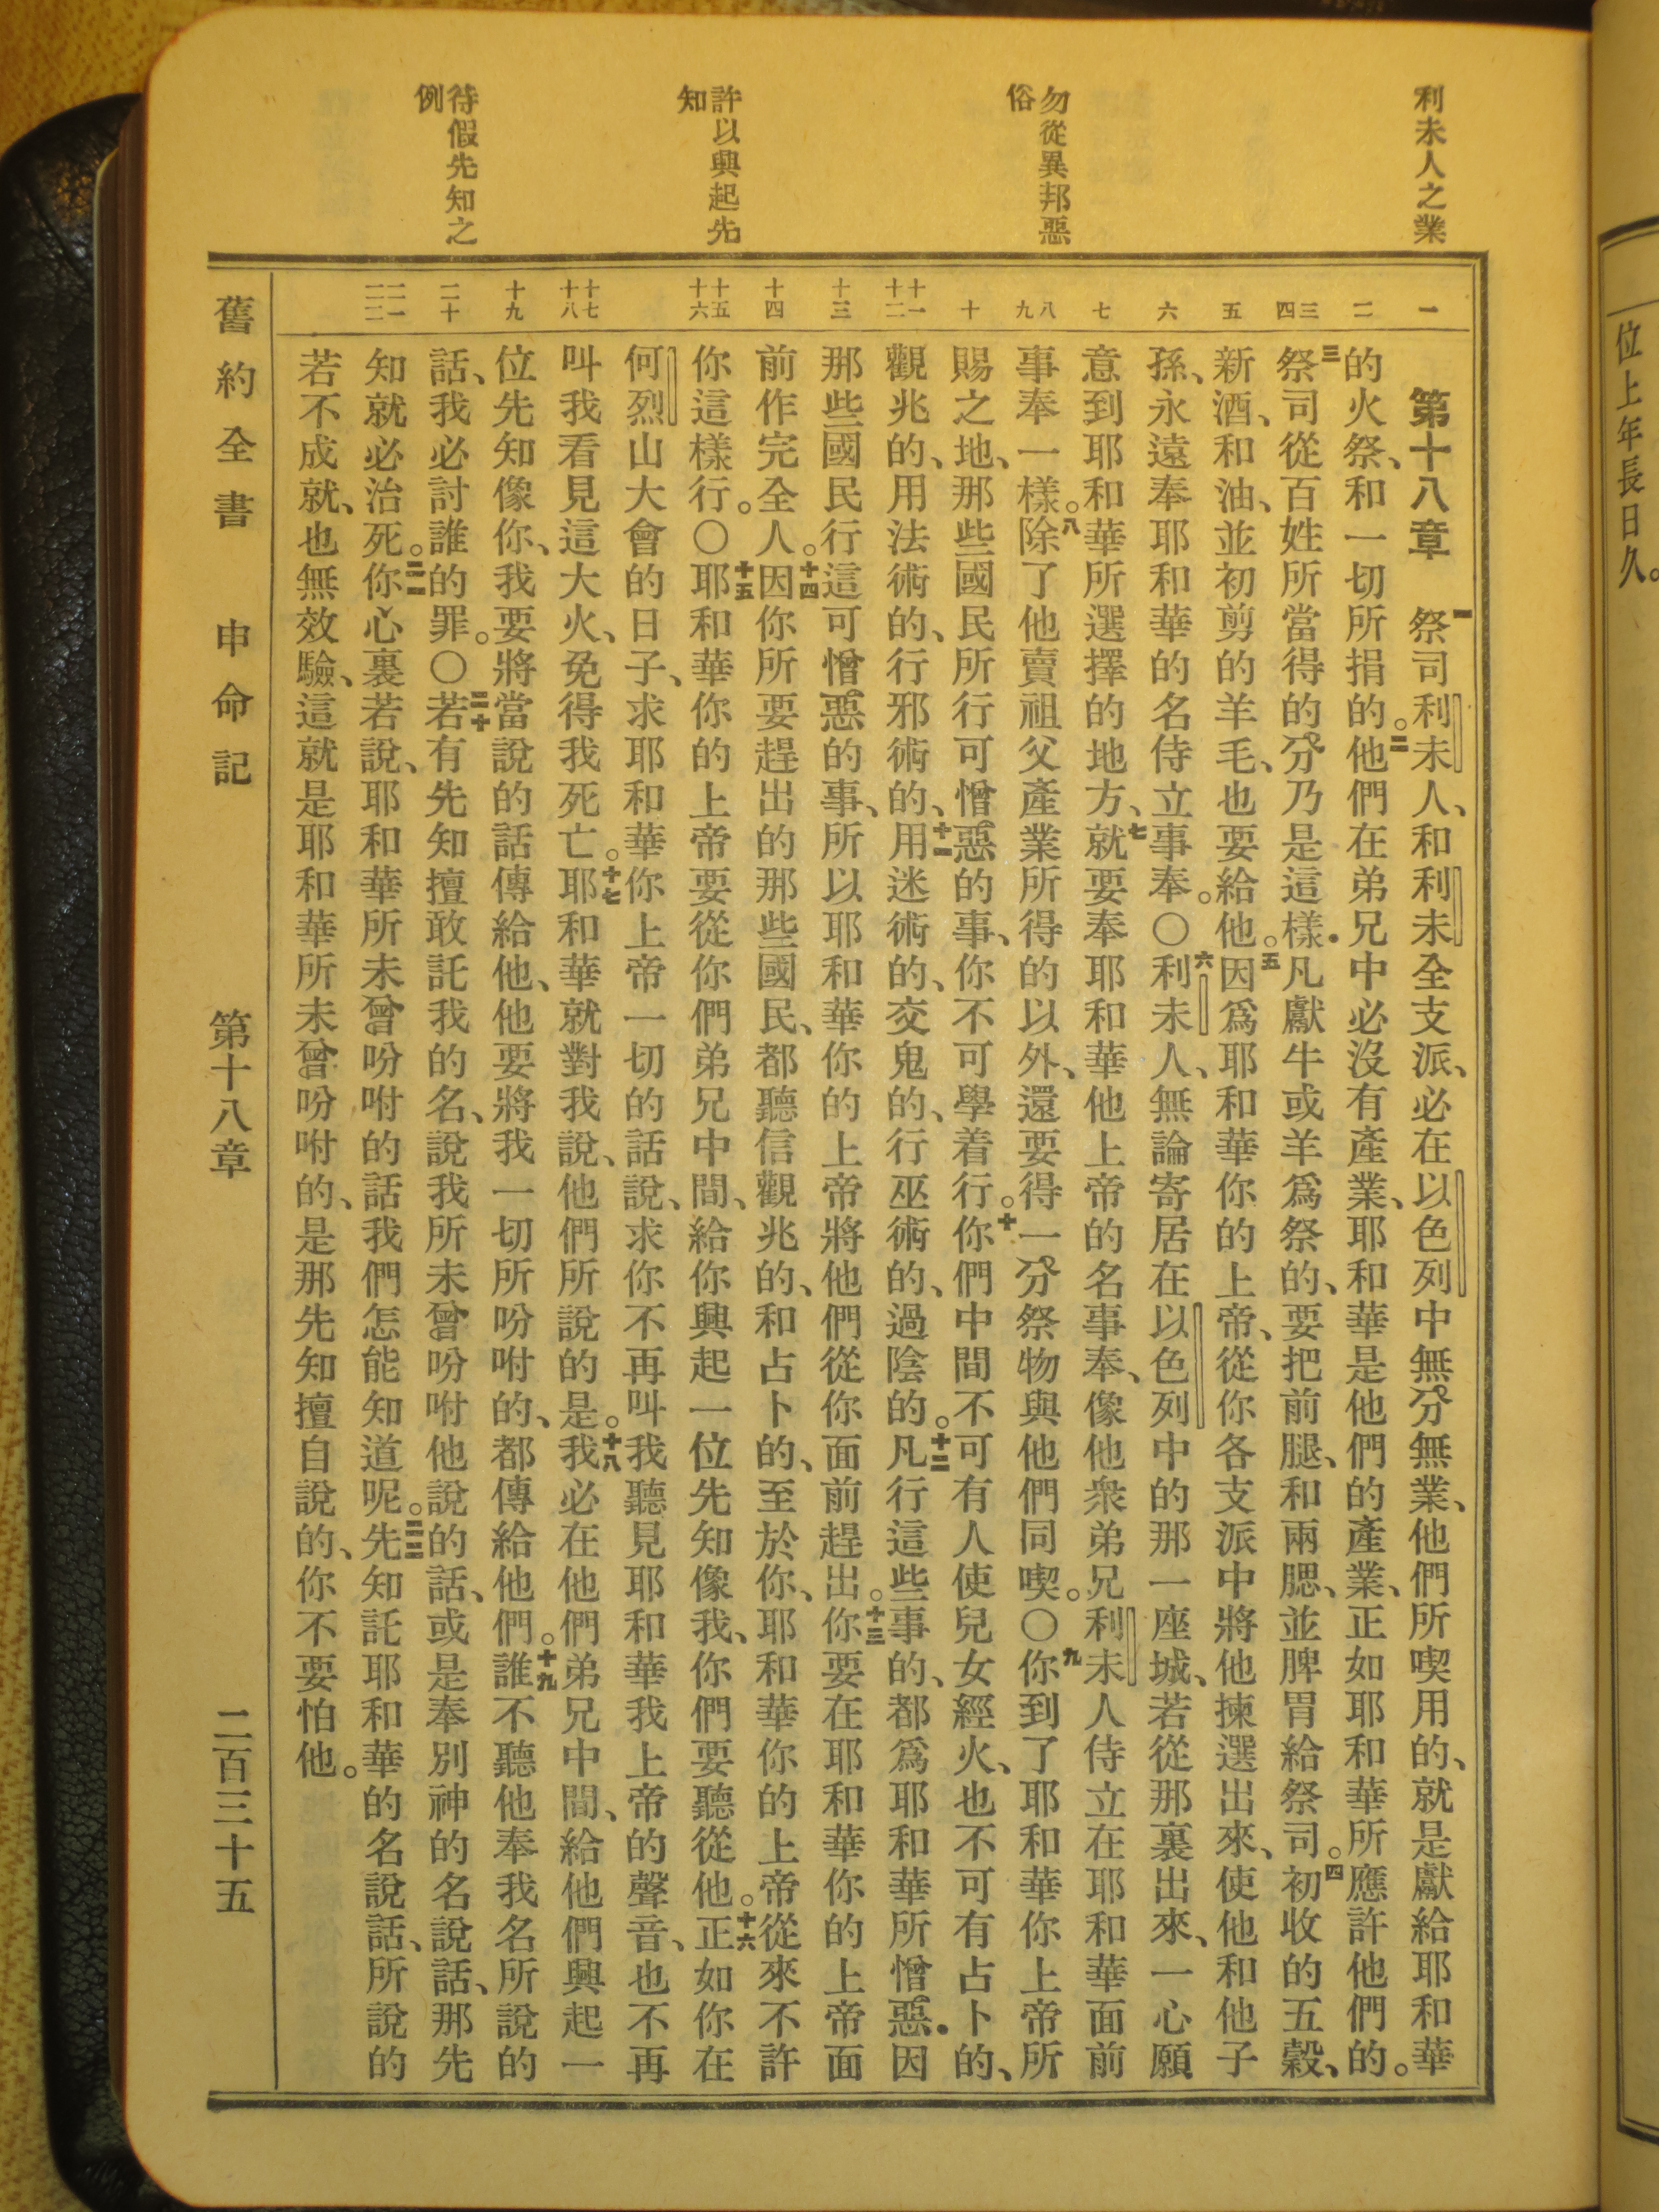 利未人之業
勿從異邦惡
俗
許以興起先
知
待假先知之
例
一
二
三
四
五
六
七
八
九
十
十一
十二
十三
十四
十五
十六
十七
十八
十九
二十
二一
二二
第十八章 一祭司利未人、和利未全支派、必在以色列中無分無業、他們所喫用的、就是獻給耶和華
的火祭、和一切所捐的。二他們在弟兄中必沒有產業、耶和華是他們的產業、正如耶和華所應許他們的。
三祭司從百姓所當得的分乃是這樣．凡獻牛或羊爲祭的、要把前腿、和兩腮、並脾胃給祭司。四初收的五穀、
新酒、和油、並初剪的羊毛、也要給他。五因爲耶和華你的上帝、從你各支派中將他揀選出來、使他和他子
孫、永遠奉耶和華的名侍立事奉。〇六利未人、無論寄居在以色列中的那一座城、若從那裏出來、一心願
意到耶和華所選擇的地方、七就要奉耶和華他上帝的名事奉、像他衆弟兄利未人侍立在耶和華面前
事奉一樣。八除了他賣祖父產業所得的以外、還要得一分祭物與他們同喫。〇九你到了耶和華你上帝所
賜之地、那些國民所行可憎惡的事、你不可學着行。十你們中間不可有人使兒女經火、也不可有占卜的、
觀兆的、用法術的、行邪術的、十一用迷術的、交鬼的、行巫術的、過陰的。十二凡行這些事的、都爲耶和華所憎惡．因
那些國民行這可憎惡的事、所以耶和華你的上帝將他們從你面前趕出。十三你要在耶和華你的上帝面
前作完全人。十四因你所要趕出的那些國民、都聽信觀兆的、和占卜的、至於你、耶和華你的上帝從來不許
你這樣行。〇十五耶和華你的上帝要從你們弟兄中間、給你興起一位先知像我、你們要聽從他。十六正如你在
何烈山大會的日子、求耶和華你上帝一切的話說、求你不再叫我聽見耶和華我上帝的聲音、也不再
叫我看見這大火、免得我死亡。十七耶和華就對我說、他們所說的是。十八我必在他們弟兄中間、給他們興起一
位先知像你、我要將當說的話傳給他、他要將我一切所吩咐的、都傳給他們。十九誰不聽他奉我名所說的
話、我必討誰的罪。〇二十若有先知擅敢託我的名、說我所未曾吩咐他說的話、或是奉別神的名說話、那先
知就必治死。二一你心裏若說、耶和華所未曾吩咐的話我們怎能知道呢。二二先知託耶和華的名說話、所說的
若不成就、也無效驗、這就是耶和華所未曾吩咐的、是那先知擅自說的、你不要怕他。
舊約全書 申命記 第十八章 二百三十五
位上年長日久。